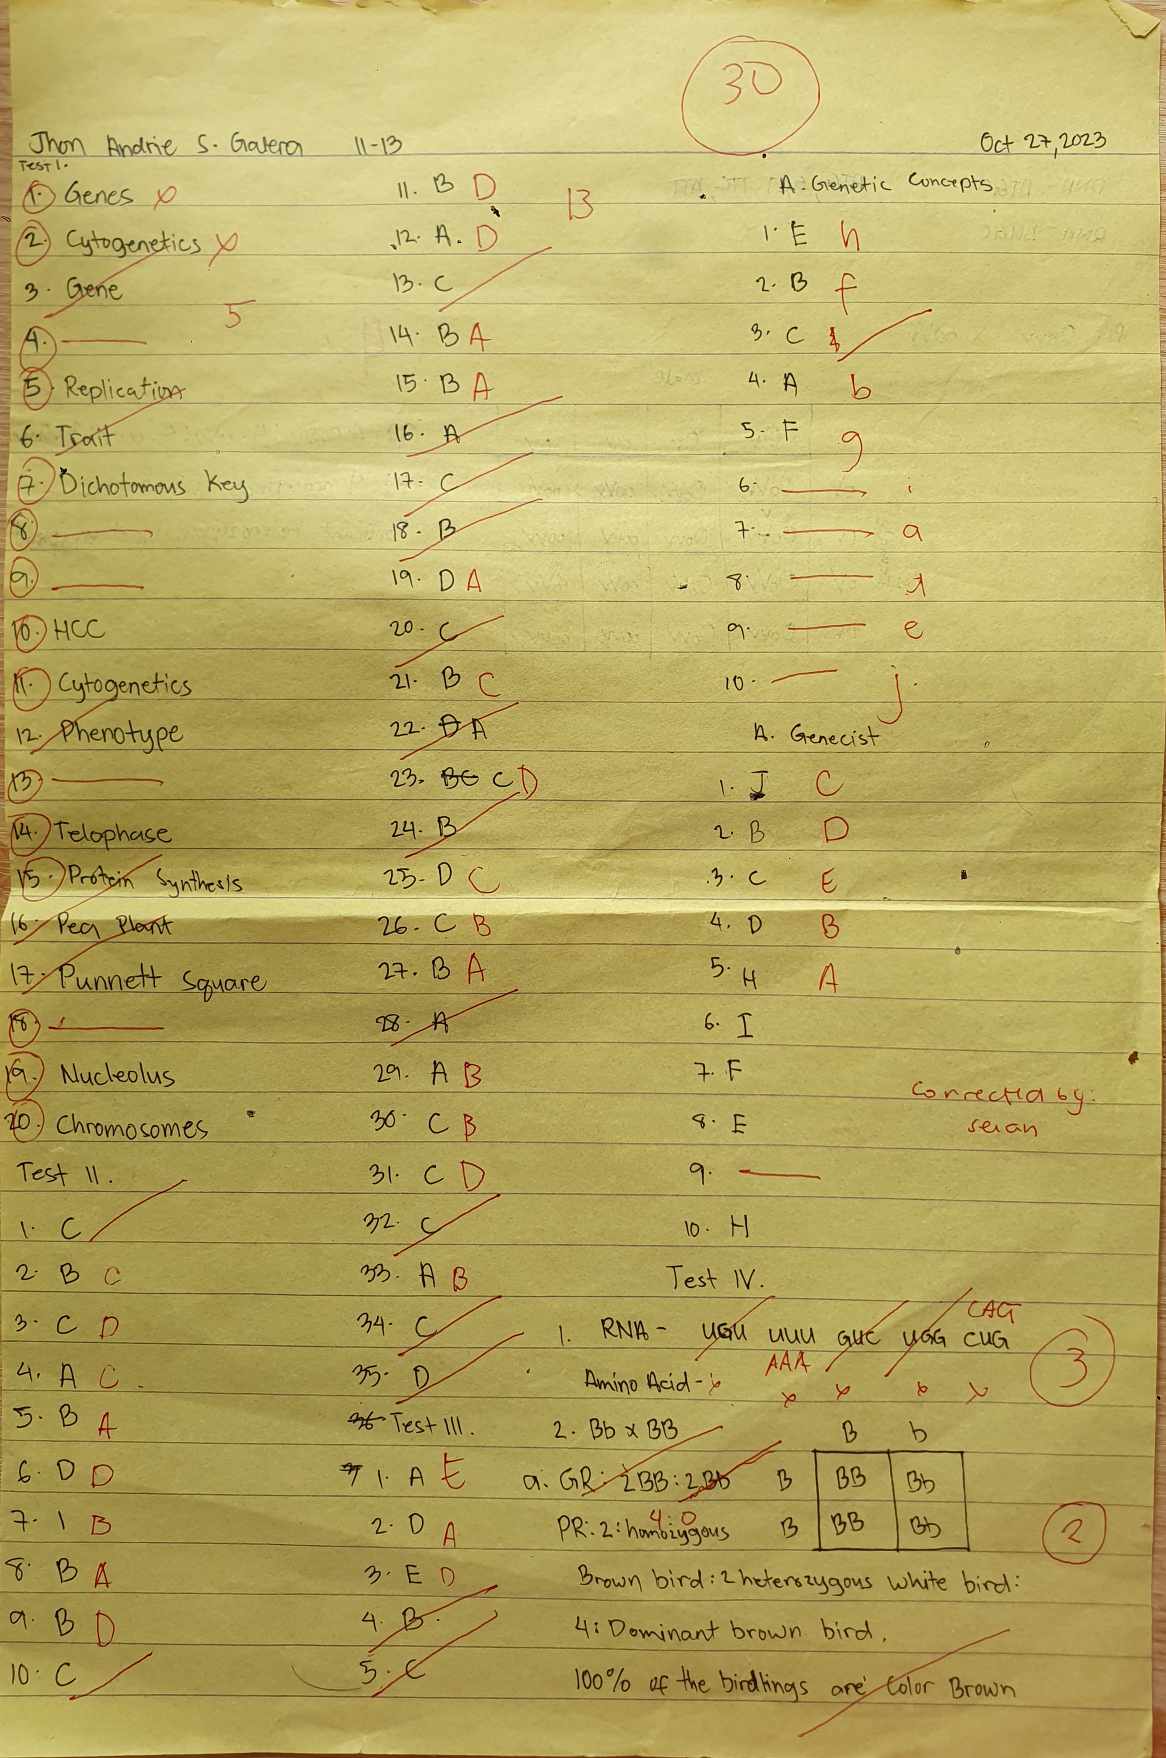 30
Jhon Andrie S. Galera 11-13 Oct 27, 2023
Test I.
1. Genes x
2. Cytogenetics x
3. Gene
5
4. —
5. Replication
6. Trait
7. Dichotomous Key
8. —
9. —
10. HCC
11. Cytogenetics
12. Phenotype
13. —
14. Telophase
15. Protein Synthesis
16. Pea Plant
17. Punnett Square
18. —
19. Nucleolus
20. Chromosomes
Test II.
1. C
2. B C
3. C D
4. A C
5. B A
6. D D
7. 1 B
8. B A
9. B D
10. C
11. B D
13
12. A. D
13. C
14. B A
15. B A
16. A
17. C
18. B
19. D A
20. C
21. B C
22. A
23. C D
24. B
25. D C
26. C B
27. B A
28. A
29. A B
30. C B
31. C D
32. C
33. A B
34. C
35. D
Test III.
1. A E
2. D A
3. E D
4. B.
5. C
A. Genetic Concepts
1. E h
2. B f
3. C
4. A b
5. F g
6. — i
7. — a
8. — d
9. — e
10. — j.
A. Genecist
1. J C
2. B D
3. C E
4. D B
5. H A
6. I
7. F
8. E
9. —
10. H
Corrected by:
Test IV.
CAG
1. RNA - UGU UUU GUC UGG CUG
AAA
3
Amino Acid - x x x x x
2. Bb x BB
B b
a. GR: 2BB:2Bb B BB Bb
4:0
PR: 2: homozygous B BB Bb
2
Brown bird: 2 heterozygous white bird:
4: Dominant brown bird.
100% of the birdlings are Color Brown